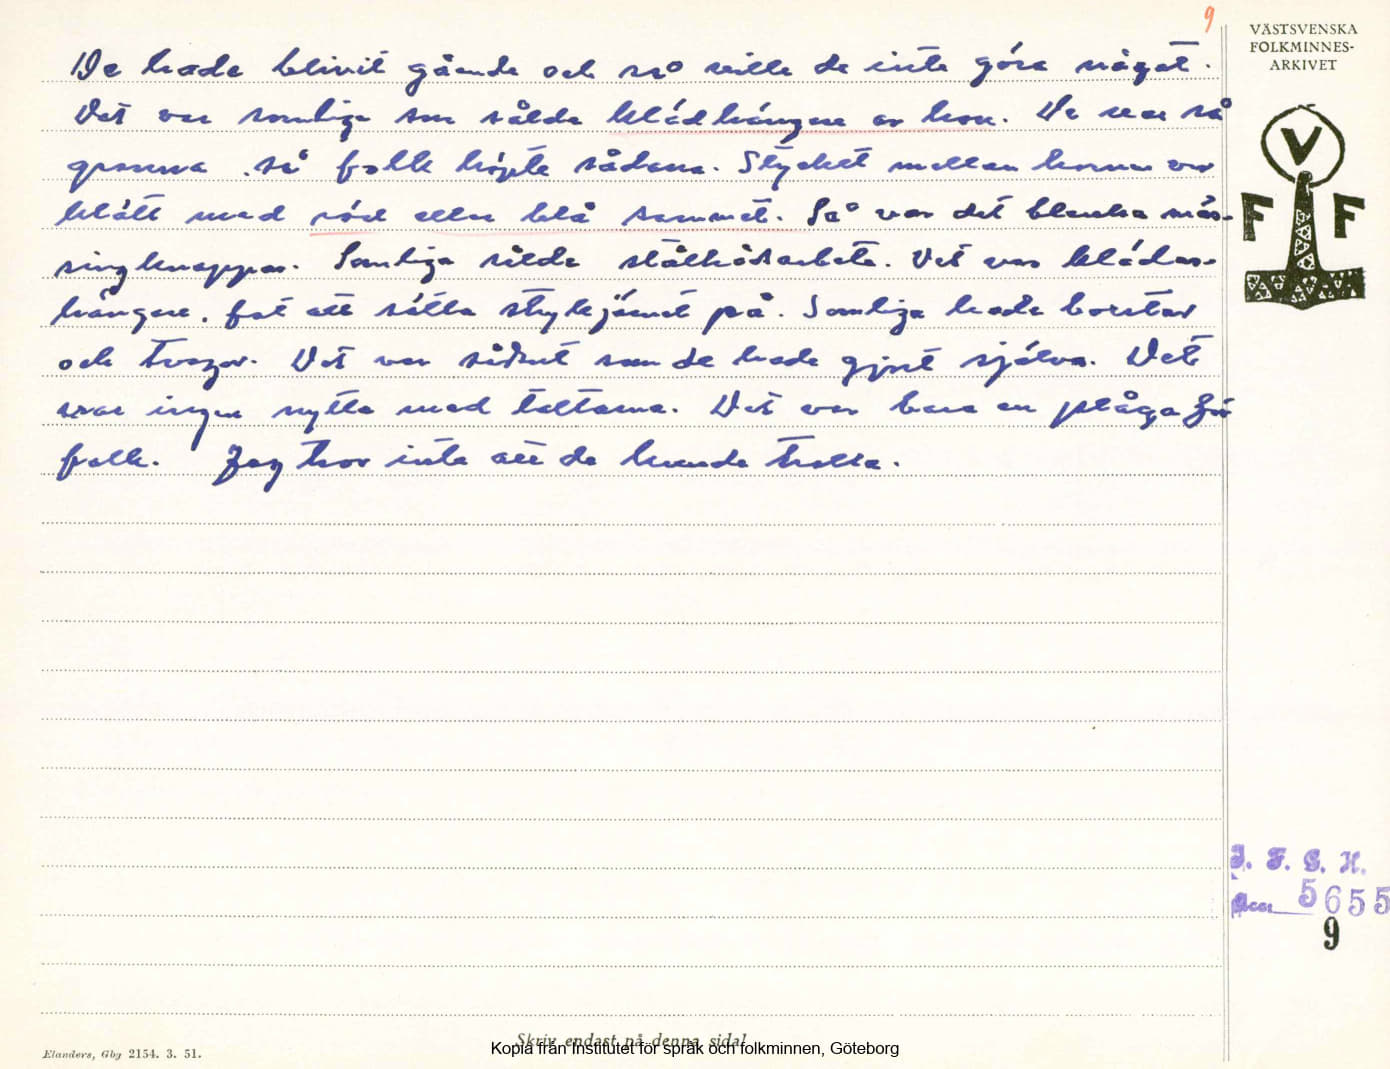 9
VÄSTSVENSKA
FOLKMINNES-
ARKIVET
V
F F
De hade blivit gående och så ville de inte göra något.
Det var somliga som sålde klädhängare av horn. De var så
granna så folk köpte sådana. Stycket mellan hornen var
klätt med röd eller blå sammet. Så var det blanka mäs-
singknappar. Somliga sålde ståltrådsarbete. Det var kläder-
hängare, fat att sätta strykjärnet på. Somliga hade borstar
och tvagor. Det var sådant som de hade gjort själva. Det
var ingen nytta med tattarna. Det var bara en plåga för
folk. Jag tror inte att de kunde trolla.
I. F. G. H.
Acc. 5655
9
Skriv endast på denna sida!
Kopia från Institutet för språk och folkminnen, Göteborg
Elanders, Gbg 2154. 3. 51.